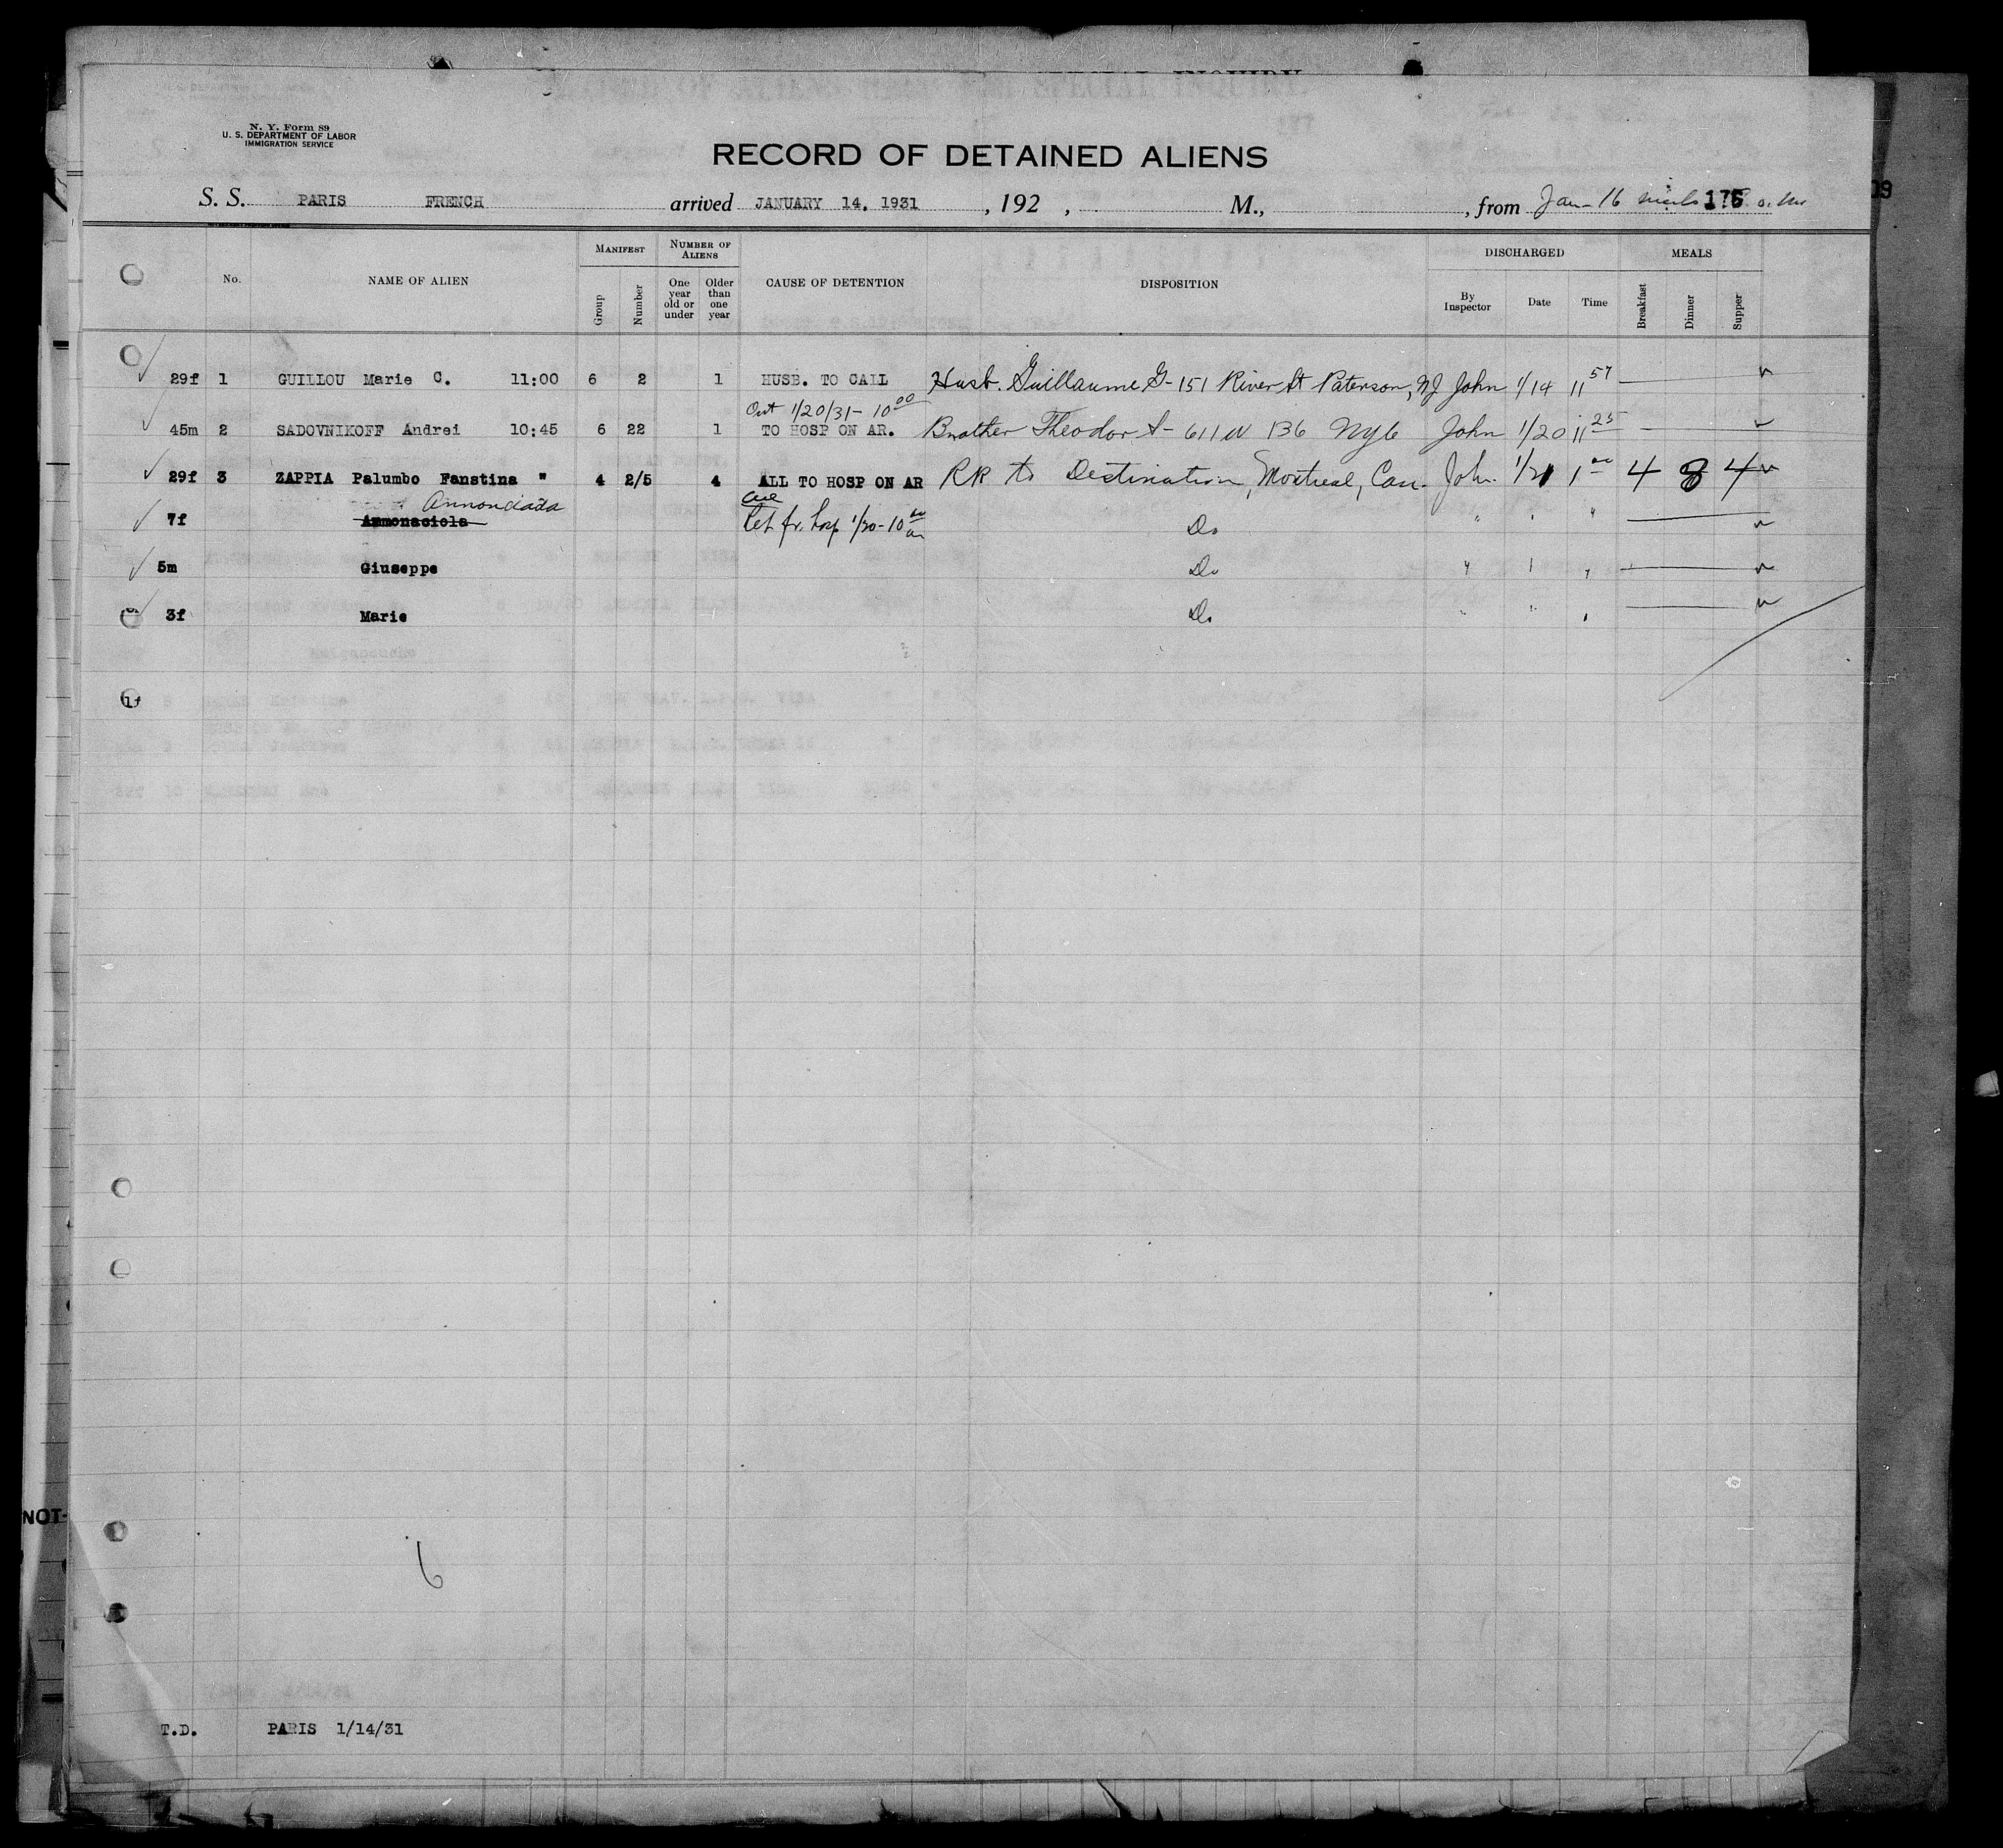 SPECIAL INQUIRY
N. Y. Form 89
U. S. DEPARTMENT OF LABOR
IMMIGRATION SERVICE
RECORD OF DETAINED ALIENS
S. S. PARIS FRENCH arrived JANUARY 14, 1931 , 192 , M., , from Jan 16 176
No. NAME OF ALIEN MANIFEST Group Number NUMBER OF ALIENS One year old or under Older than one year CAUSE OF DETENTION DISPOSITION DISCHARGED By Inspector Date Time MEALS Breakfast Dinner Supper
29f 1 GUILLOU Marie C. 11:00 6 2 1 HUSB. TO CALL Husb. Guillaume G - 151 River St Paterson, NJ John 1/14 11 57
Out 1/20/31 - 10 00
45m 2 SADOVNIKOFF Andrei 10:45 6 22 1 TO HOSP ON AR. Brother Theodor S - 611 W 136 NYC John 1/20 11 25
29f 3 ZAPPIA Palumbo Fanstina " 4 2/5 4 ALL TO HOSP ON AR RR to Destination, Montreal, Can. John. 1/21 1 00 4 8 4
Annonciada
7f Ammonaciola fr. hosp 1/20 - 10 Do " " "
5m Giuseppe Do " " "
3f Marie Do " " "
1f
6
NOT-
T.D. PARIS 1/14/31